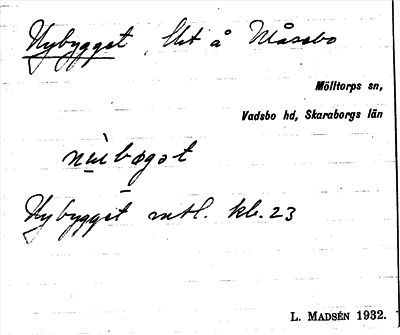 Nybygget, lht å Måssbo
Mölltorps sn,
Vadsbo hd, Skaraborgs län
Nybygget mtl. kb. 23
L. MADSÉN 1932.